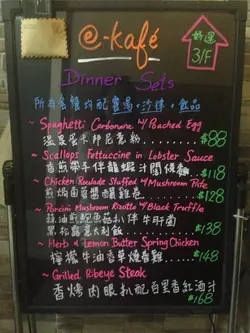 e-kafé
3/F
Dinner Sets
所有套餐均配餐湯+沙律+飲品
~ Spaghetti Carbonara w/ Poached Egg
溫泉蛋卡邦尼意粉 $88
~ Scallops Fettuccine in Lobster Sauce
香煎帶子伴龍蝦汁闊條麵 $118
~ Chicken Roulade Stuffed w/ Mushroom Pate
$128
~ Porcini Mushroom Risotto w/ Black Truffle
牛肝菌
黑松露意大利飯 $138
~ Herb & Lemon Butter Spring Chicken
檸檬牛油香草燒春雞 $148
~ Grilled Ribeye Steak
香烤肉眼扒配百里香紅酒汁
$168